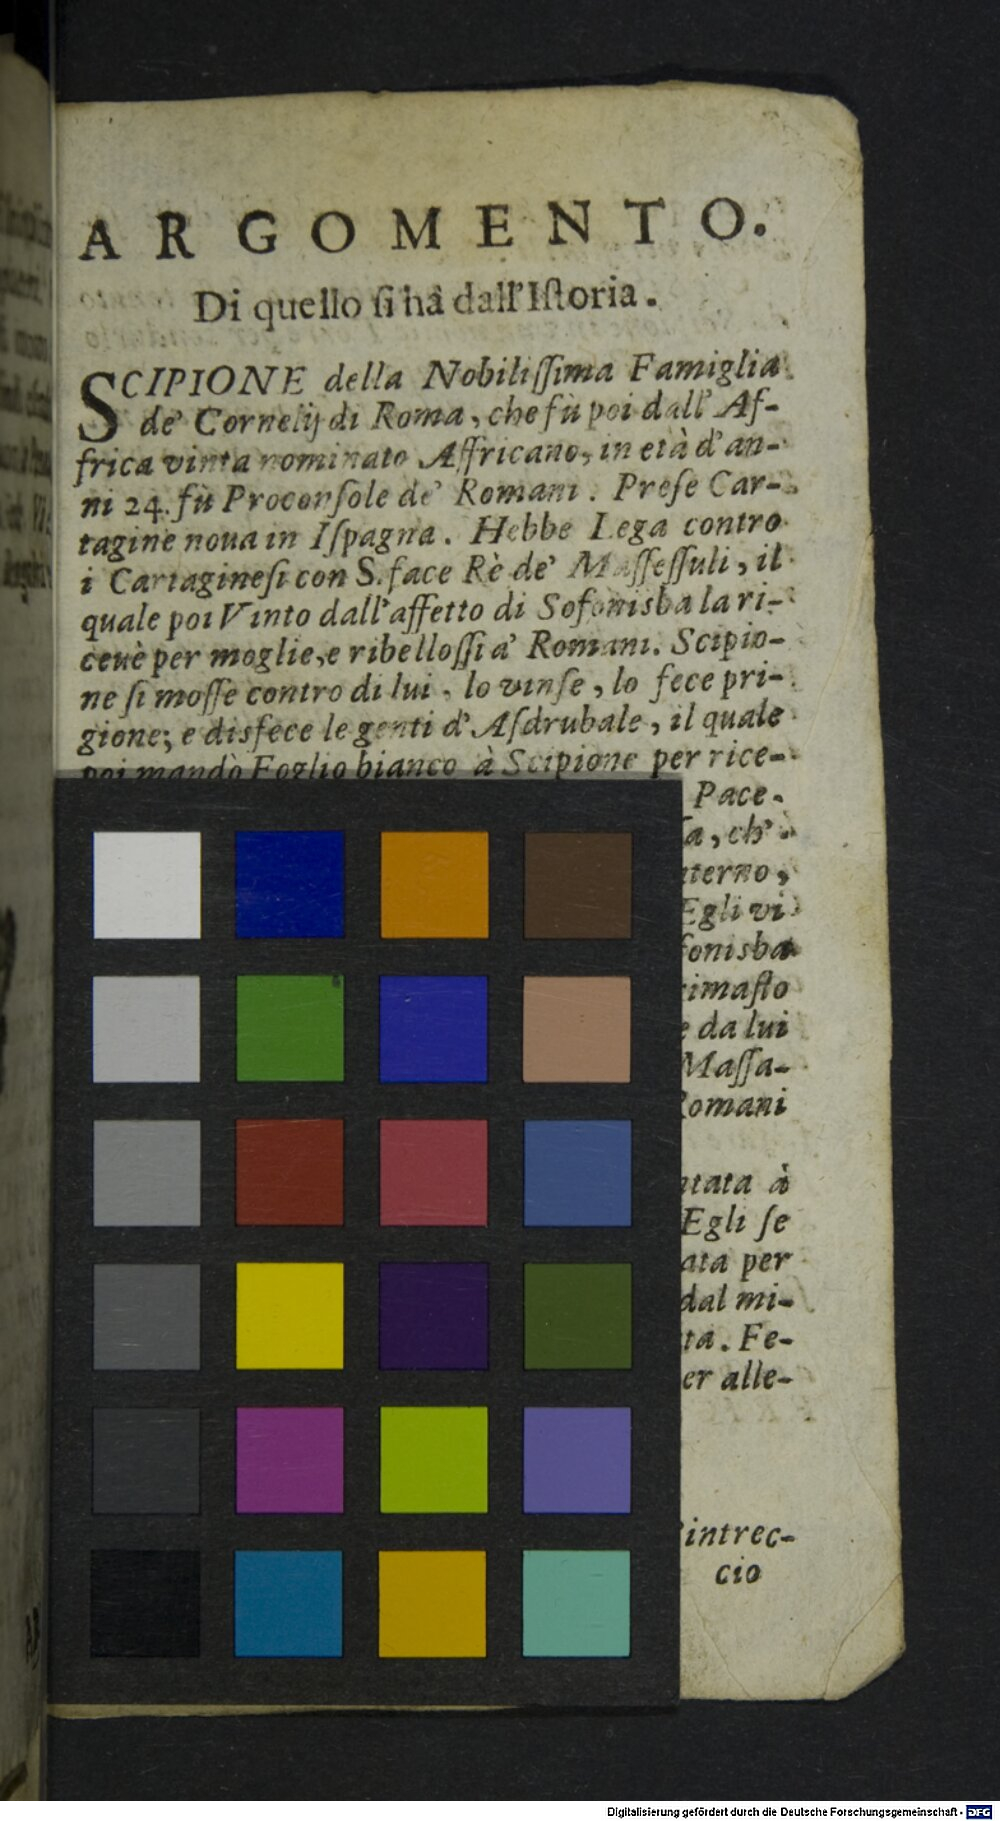 ARGOMENTO.
Di quello si hà dall'Istoria.
SCIPIONE della Nobilissima Famiglia
de' Cornelij di Roma, che fù poi dall' Af-
frica vinta nominato Affricano, in età d'an-
ni 24. fù Proconsole de' Romani. Prese Car-
tagine noua in Ispagna. Hebbe Lega contro
i Cartaginesi con S.face Rè de' Massessuli, il
quale poi Vinto dall'affetto di Sofonisba la ri-
ceuè per moglie, e ribellossi a' Romani. Scipio-
ne si mosse contro di lui, lo vinse, lo fece pri-
gione; e disfece le genti d'Asdrubale, il quale
poi mandò Foglio bianco à Scipione per rice-
Pace.
sa, ch'
terno,
Egli vi
fonisba
rimasto
e da lui
Massa-
Romani
tata à
Egli se
ata per
dal mi-
ta. Fe-
er alle-
l'intrec-
cio
Digitalisierung gefördert durch die Deutsche Forschungsgemeinschaft - DFG